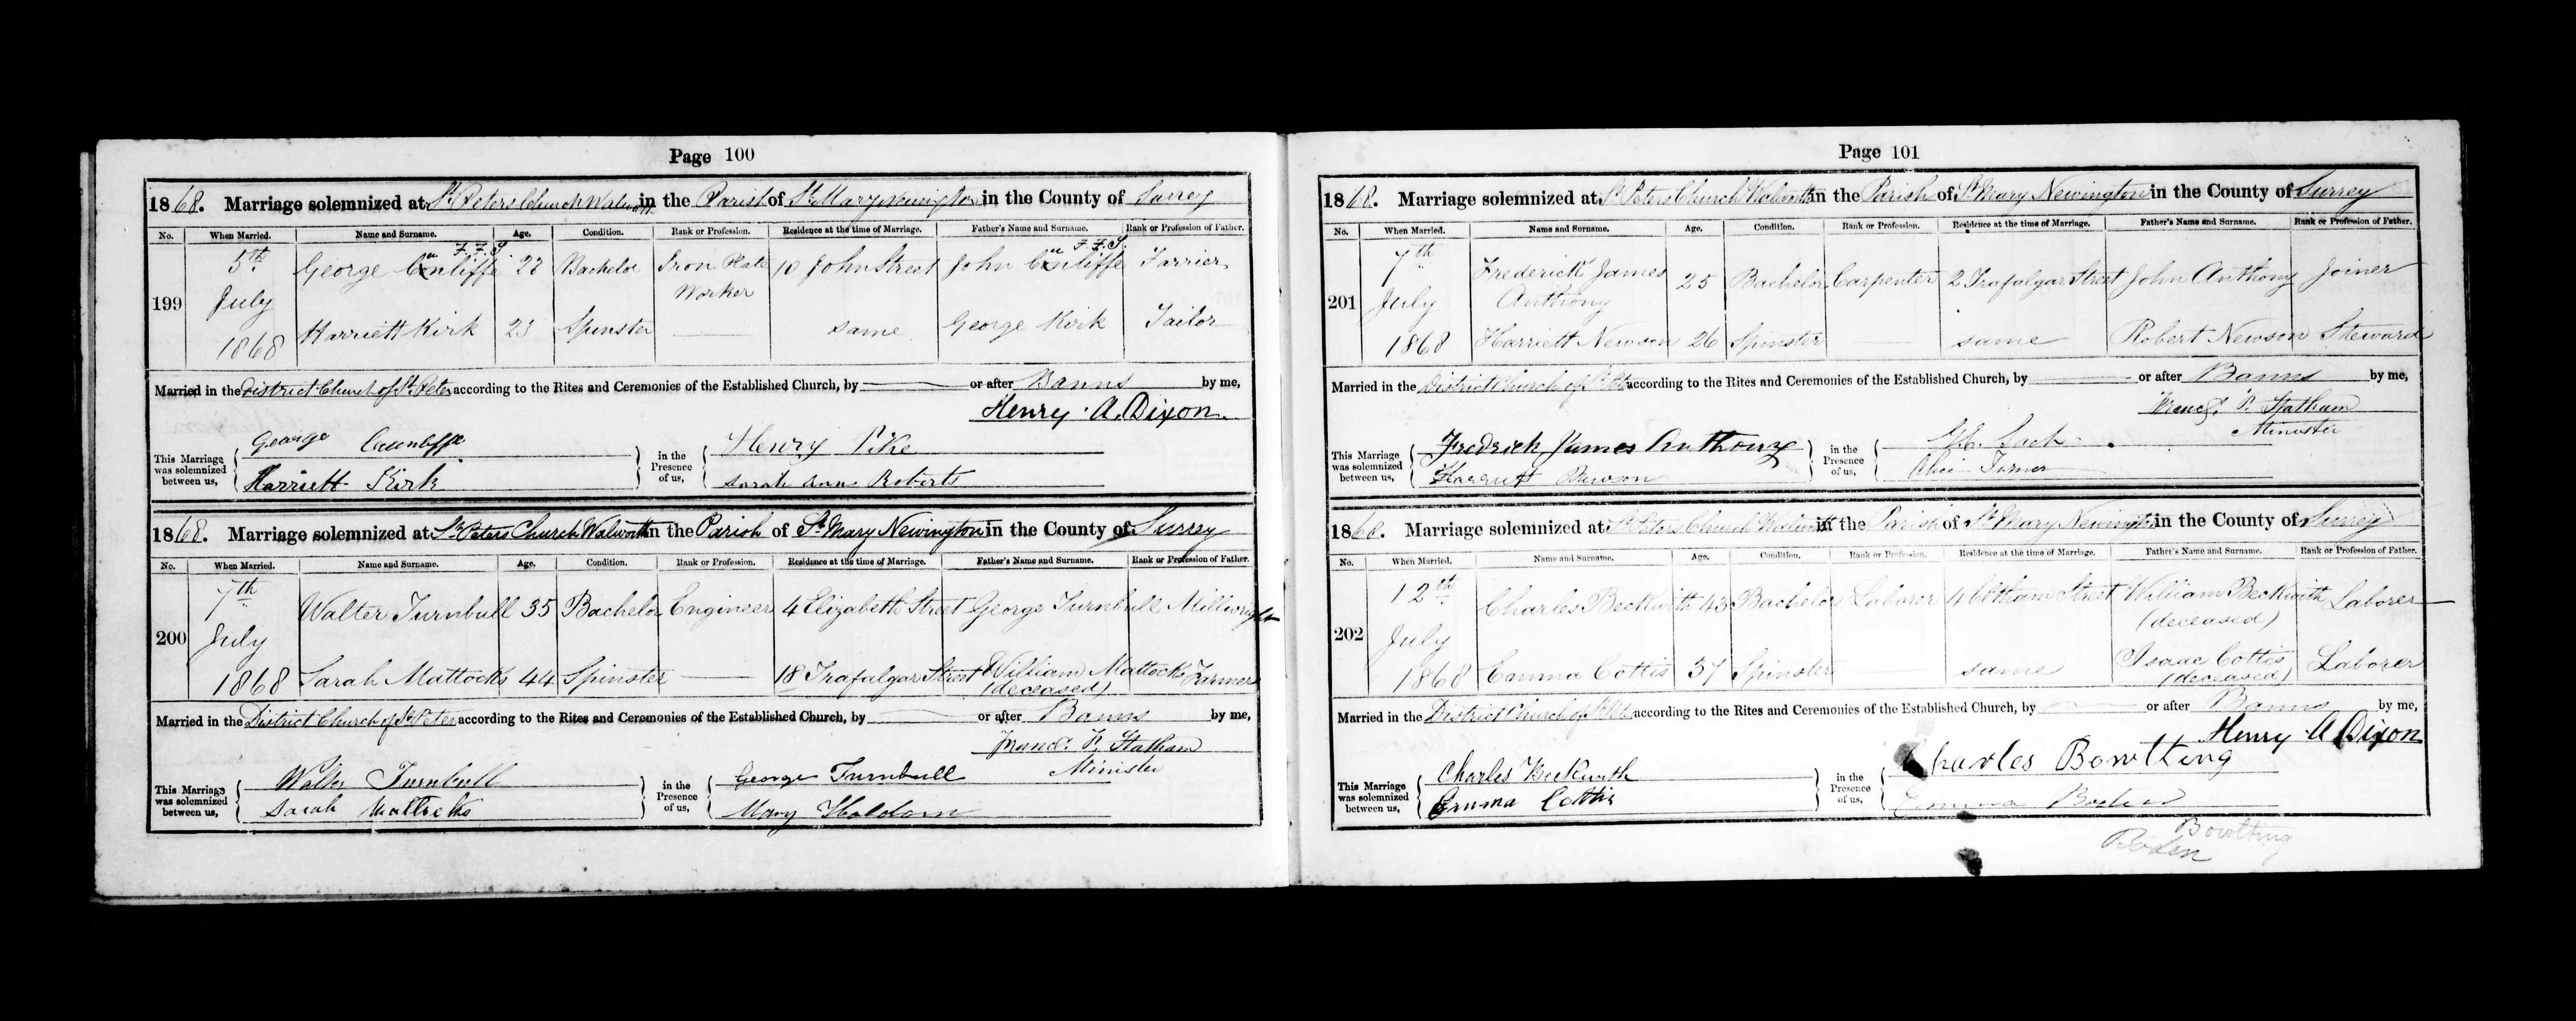 Page 100
1868. Marriage solemnized at St Peters Church Walworth in the Parish of St Mary Newington in the County of Surrey
No. When Married. Name and Surname. Age. Condition. Rank or Profession. Residence at the time of Marriage. Father's Name and Surname. Rank or Profession of Father.
F.F.S. F.F.S.
199 5th July 1868 George Cunliffe 22 Bachelor Iron Plate Worker 10 John Street John Cunliffe Farrier
Harriett Kirk 23 Spinster same George Kirk Tailor
Married in the District Church of St Peter according to the Rites and Ceremonies of the Established Church, by or after Banns by me,
Henry A. Dixon
This Marriage was solemnized between us, George Cunliffe in the Presence of us, Henry Pike
Harriett Kirk Sarah Ann Roberts
1868. Marriage solemnized at St Peters Church Walworth in the Parish of St Mary Newington in the County of Surrey
No. When Married. Name and Surname. Age. Condition. Rank or Profession. Residence at the time of Marriage. Father's Name and Surname. Rank or Profession of Father.
200 7th July 1868 Walter Turnbull 35 Bachelor Engineer 4 Elizabeth Street George Turnbull Millwright
Sarah Mattocks 44 Spinster 18 Trafalgar Street William Mattocks (deceased) Farmer
Married in the District Church of St Peter according to the Rites and Ceremonies of the Established Church, by or after Banns by me,
Francs. F. Statham
Minister
This Marriage was solemnized between us, Walter Turnbull in the Presence of us, George Turnbull
Sarah Mattocks Mary Holdom
Page 101
1868. Marriage solemnized at St Peters Church Walworth in the Parish of St Mary Newington in the County of Surrey
No. When Married. Name and Surname. Age. Condition. Rank or Profession. Residence at the time of Marriage. Father's Name and Surname. Rank or Profession of Father.
201 7th July 1868 Frederick James Anthony 25 Bachelor Carpenter 2 Trafalgar Street John Anthony Joiner
Harriett Newson 26 Spinster same Robert Newson Steward
Married in the District Church of St Peter according to the Rites and Ceremonies of the Established Church, by or after Banns by me,
Francs. F. Statham
Minister
This Marriage was solemnized between us, Fredrick James Anthony in the Presence of us,
Harriett Newson Alice Turner
1868. Marriage solemnized at St Peters Church Walworth in the Parish of St Mary Newington in the County of Surrey
No. When Married. Name and Surname. Age. Condition. Rank or Profession. Residence at the time of Marriage. Father's Name and Surname. Rank or Profession of Father.
202 12th July 1868 Charles Beckwith 43 Bachelor Laborer 4 Eltham Street William Beckwith (deceased) Laborer
Emma Cottis 37 Spinster same Isaac Cottis (deceased) Laborer
Married in the District Church of St Peter according to the Rites and Ceremonies of the Established Church, by or after Banns by me,
Henry A Dixon
This Marriage was solemnized between us, Charles Beckwith in the Presence of us, Charles Bowlting
Emma Cottis Emma Boden
Bowlting
Boden